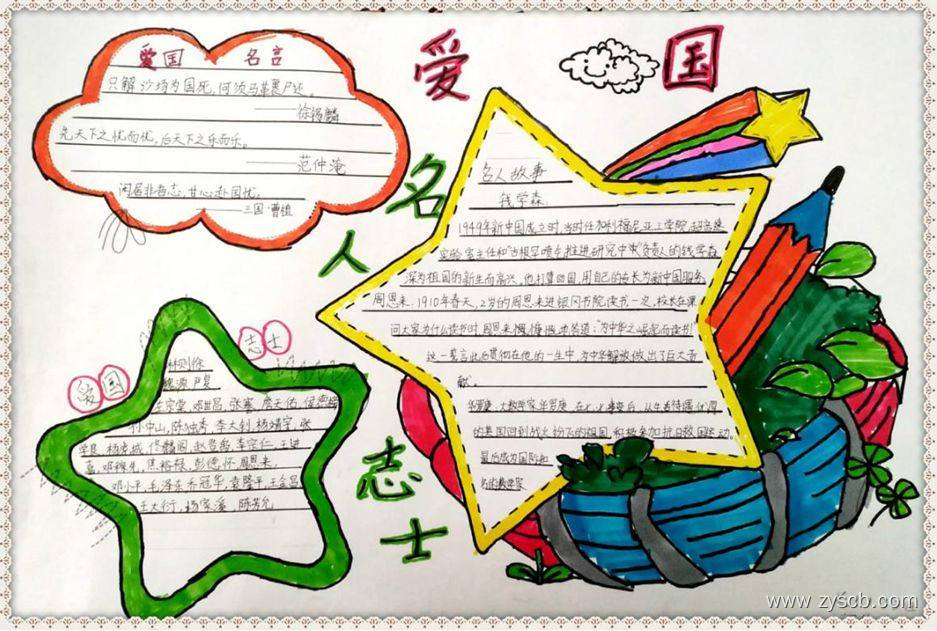 爱国
名人志士
爱国 名言
只解沙场为国死,何须马革裹尸还。
——徐锡麟
先天下之忧而忧,后天下之乐而乐。
——范仲淹
闲居非吾志,甘心赴国忧。
——三国·曹植
名人故事
钱学森:
1949年新中国成立时,当时任加利福尼亚工学院超音速
实验室主任和古根罕喷气推进研究中心负责人的钱学森
深为祖国的新生而高兴,他打算回国,用自己的专长为新中国服务
周恩来:1910年春天,12岁的周恩来进银冈书院读书一次,校长在课
问大家为什么读书时,周恩来慷慨激动答道:"为中华之崛起而读书!"
这一誓言此后贯彻在他的一生中,为中华解放做出了巨大贡
献。
华罗庚:大数学家华罗庚,在
的美国回到战火纷飞的祖国,积极参加抗日救国运动,
最后成为国际知
名的数学家
爱国 志士
林则徐
魏源 严复
左宗棠 邓世昌,张謇 詹天佑,
孙中山,陈独秀,李大钊,杨靖宇,张
学良 杨虎城,佟麟阁 赵登禹 李宗仁,王进
喜,邓稼先,焦裕禄,彭德怀 周恩来,
邓小平,毛泽东 乔冠华,袁隆平,
王大衍,
www.zyscb.com